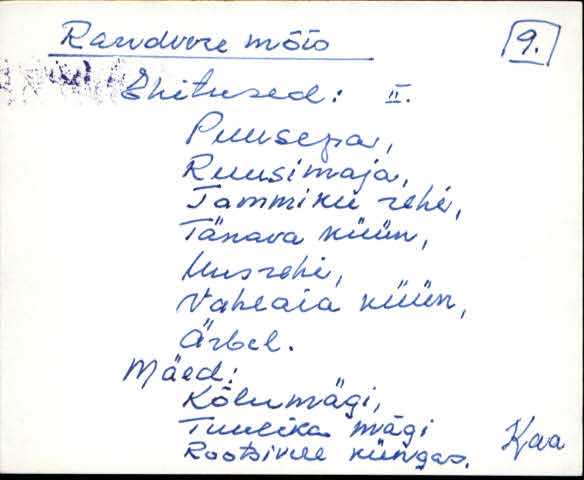 Randvere mõis
9.
Ehitused: II.
Puusepa,
Ruusimaja,
Tammiku rehi,
Tänava küün,
Uusrehi,
Vaheaia küün,
Ärbel.
Mäed:
Kõlumägi,
Tuulika mägi
küngas.
Kaa